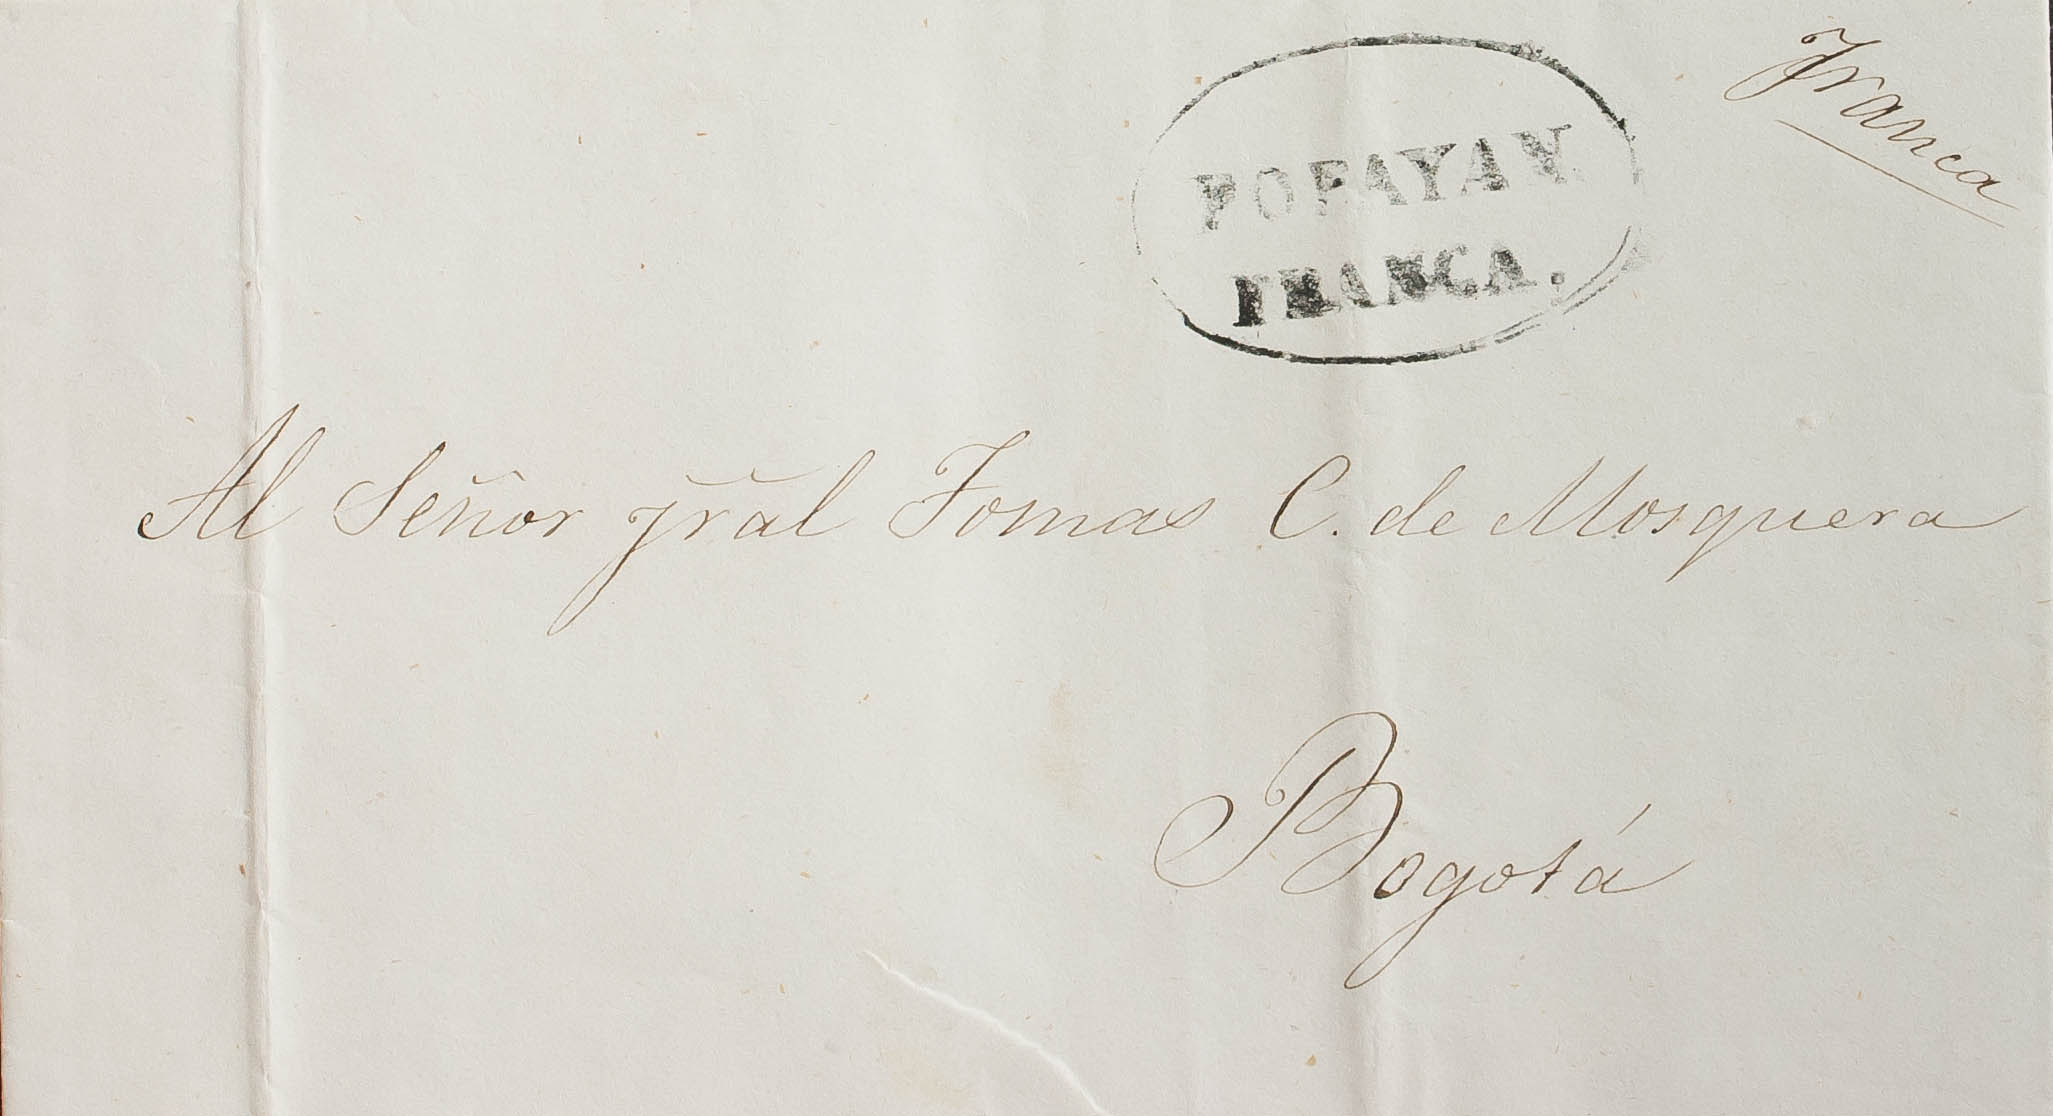 Franca
POPAYAN
FRANCA.
Al Señor jral Tomas C. de Mosquera
Bogotá